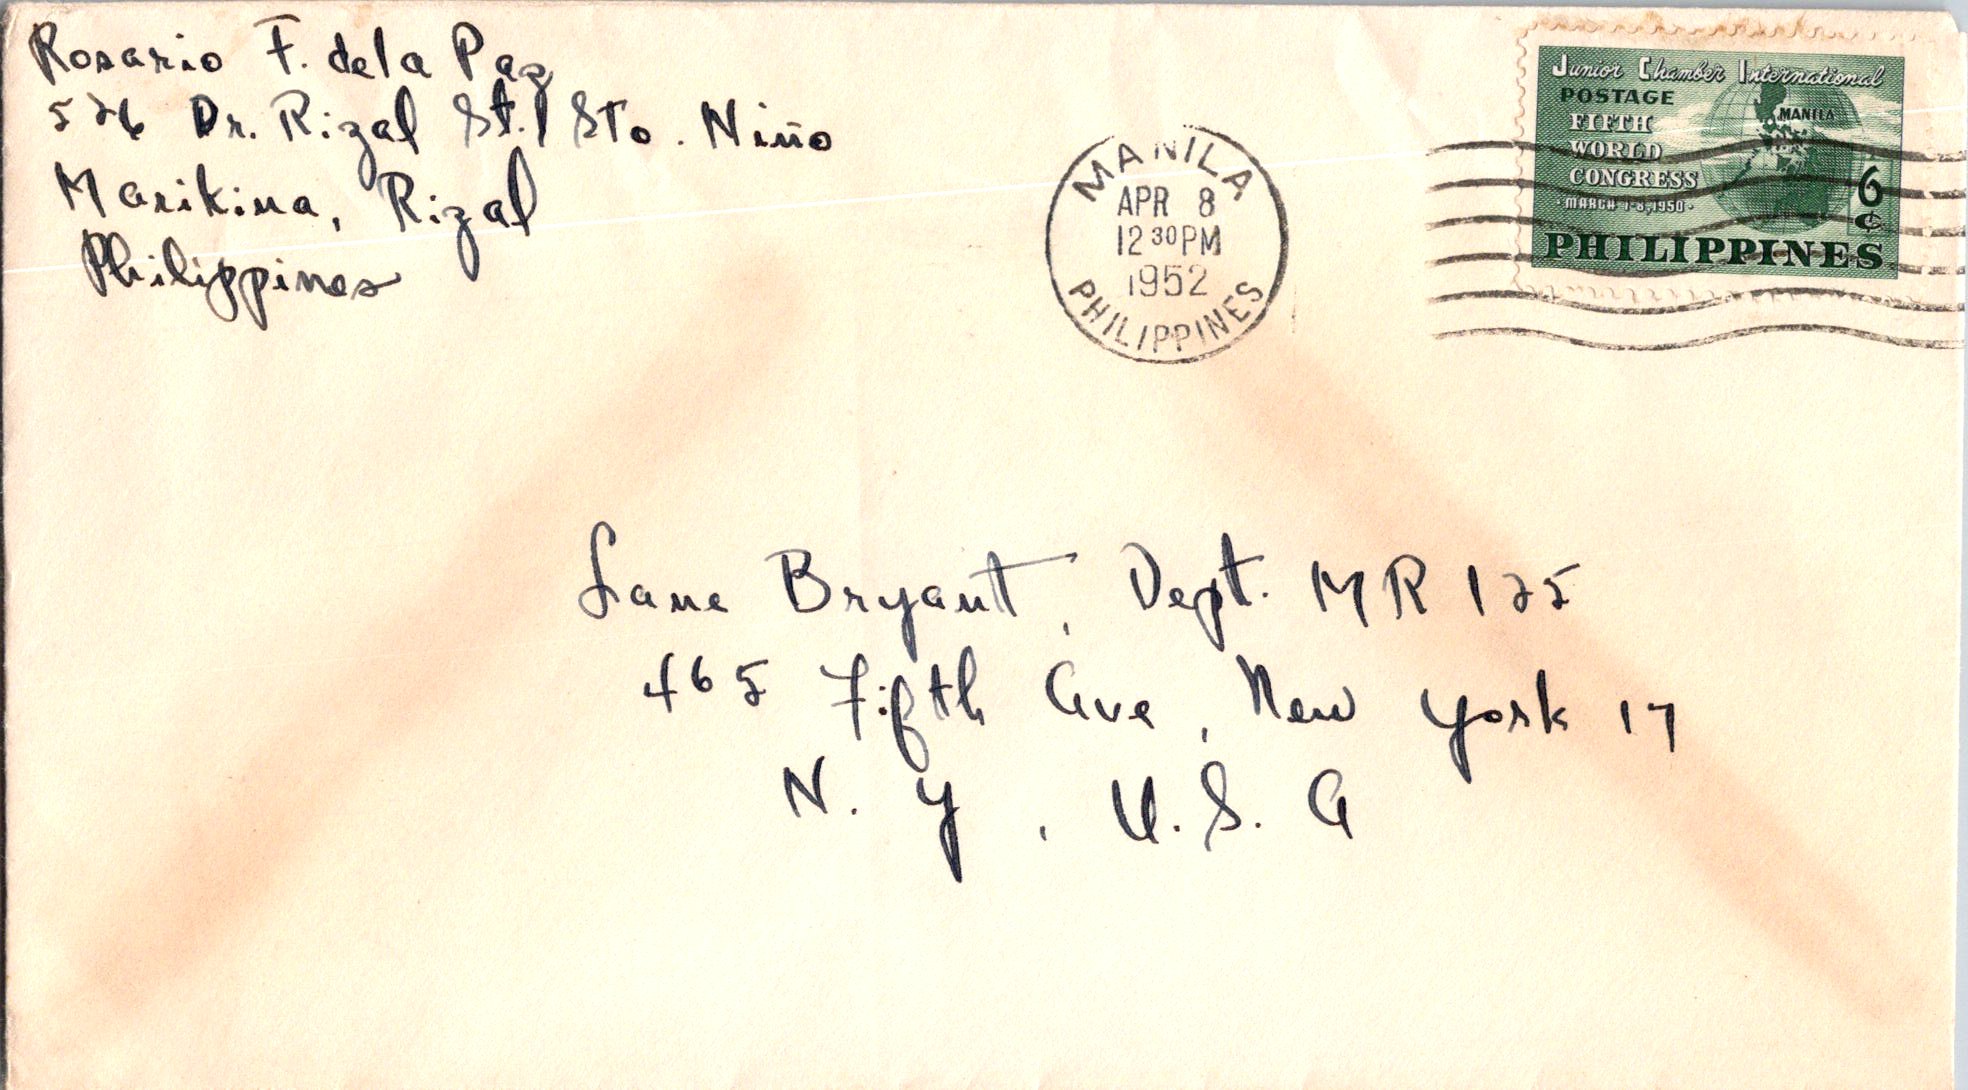 Rosario F. dela Paz
526 Dr. Rizal St., Sto. Niño
Marikina, Rizal
Philippines
MANILA
APR 8
12 30 PM
1952
PHILIPPINES
Junior Chamber International
POSTAGE
FIFTH
WORLD
CONGRESS
·MARCH 1-8, 1950·
MANILA
6
¢
PHILIPPINES
Lane Bryant, Dept. MR 125
465 Fifth Ave, New York 17
N. Y, U. S. A